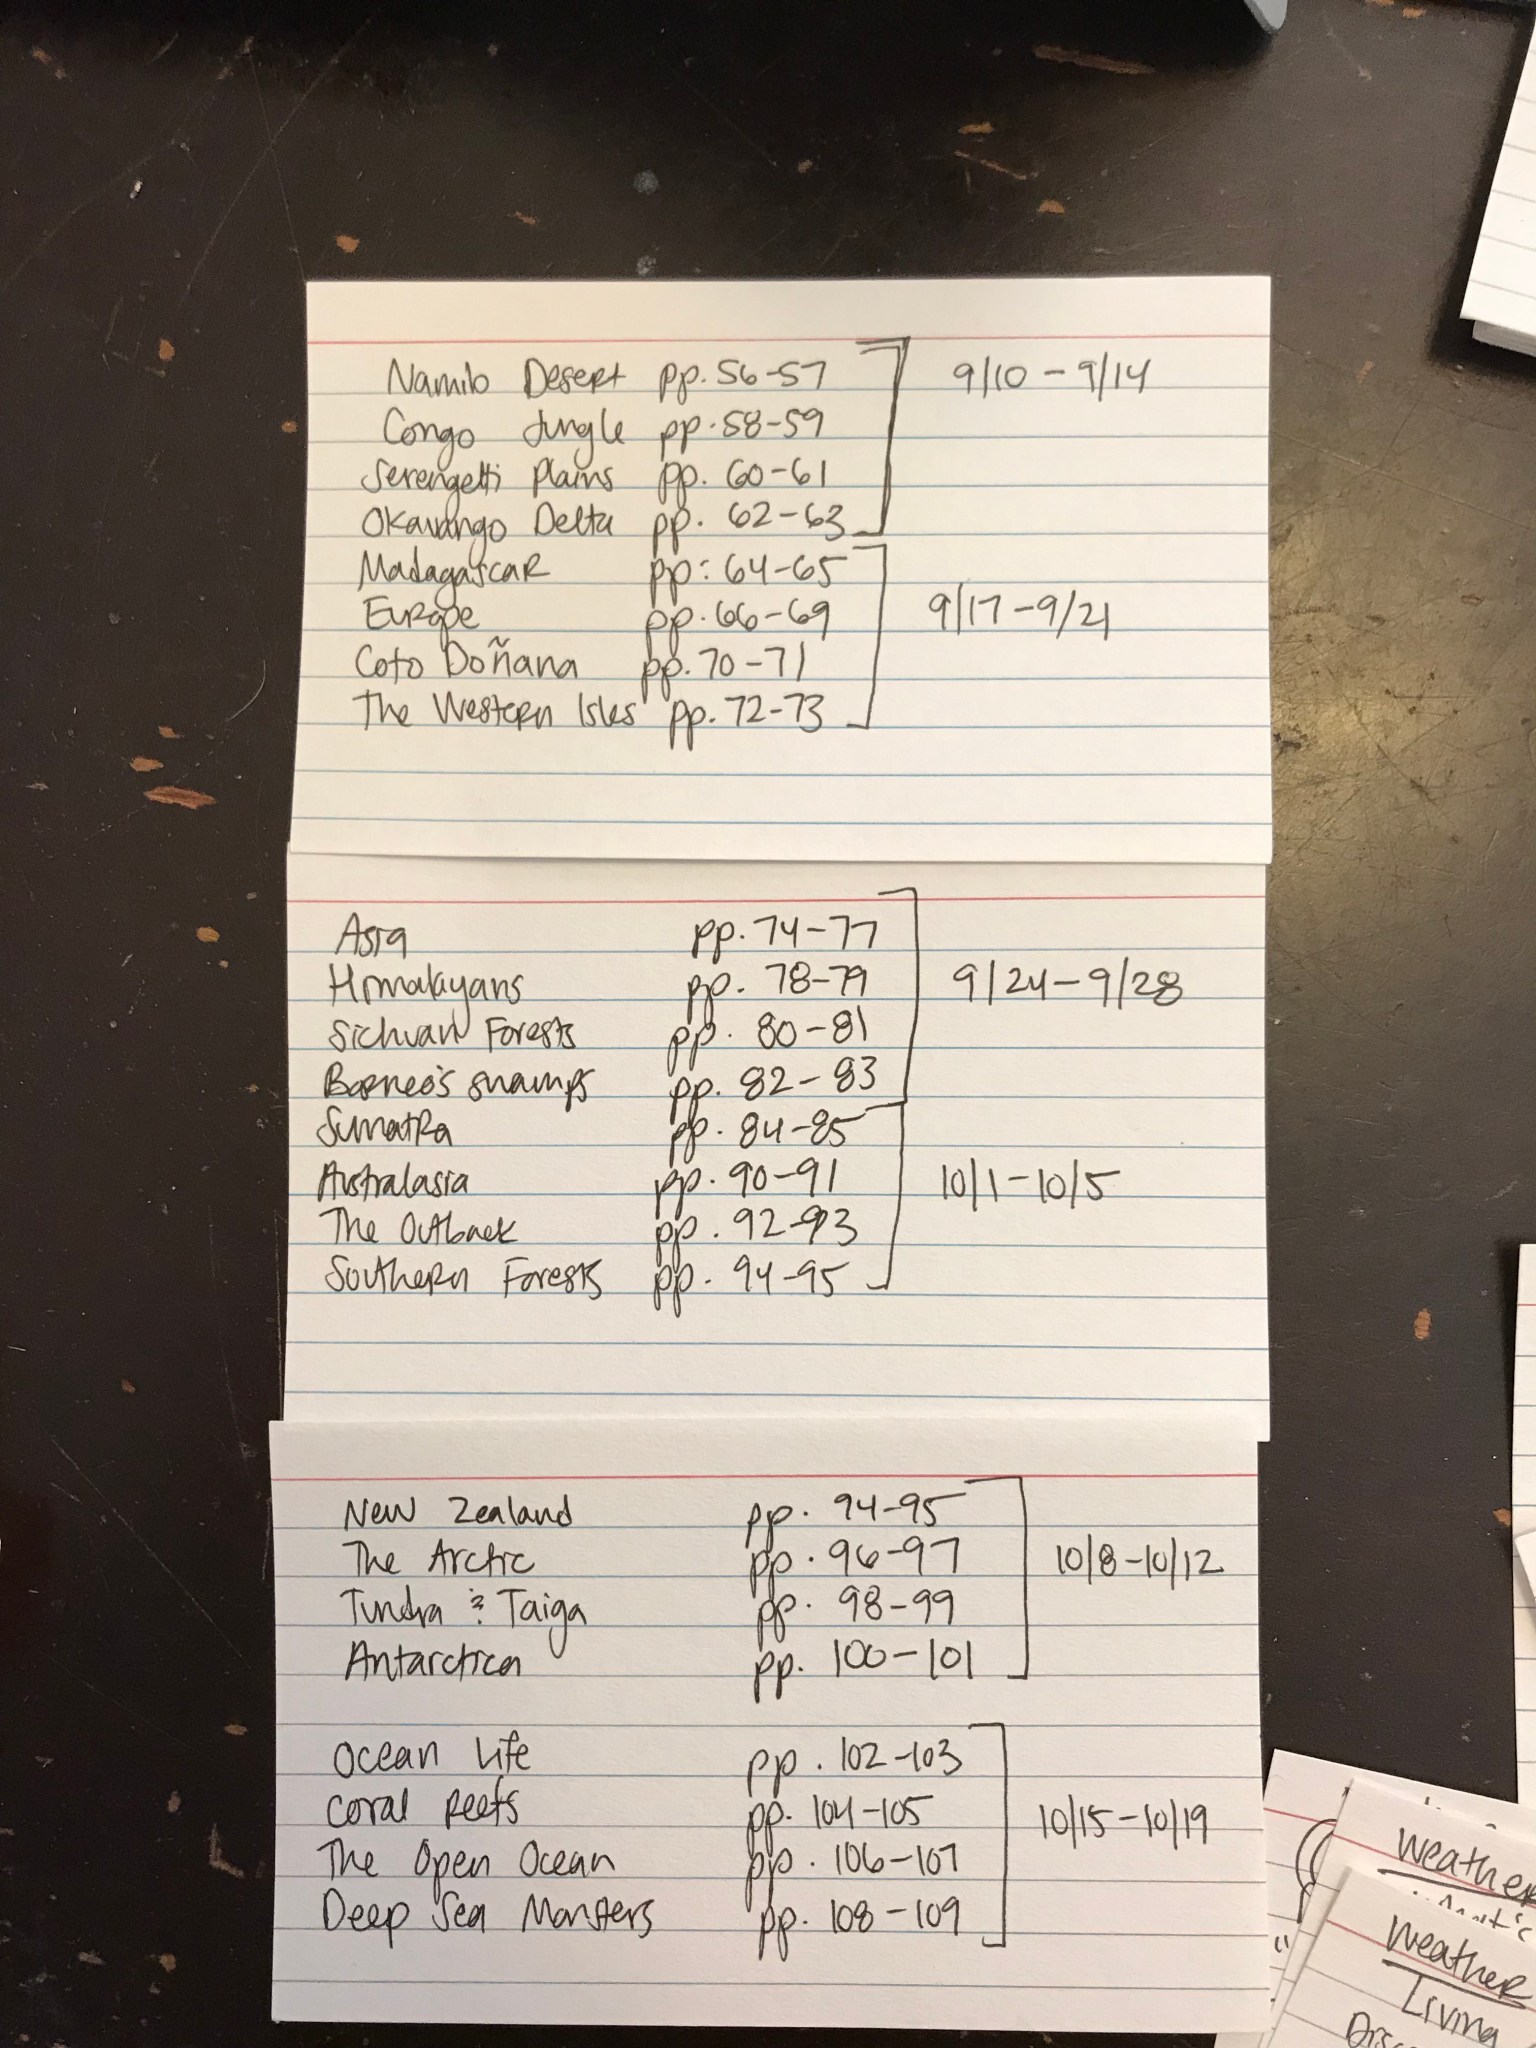 Namib Desert pp. 56-57 9/10 - 9/14
Congo Jungle pp. 58-59
Serengetti Plains pp. 60-61
Okavango Delta pp. 62-63
Madagascar pp: 64-65
Europe pp. 66-69 9/17 - 9/21
Coto Doñana pp. 70-71
The Western Isles pp. 72-73
Asia pp. 74-77
Himalayans pp. 78-79 9/24 - 9/28
Sichuan Forests pp. 80-81
Borneo's swamps pp. 82-83
Sumatra pp. 84-85
Australasia pp. 90-91 10/1 - 10/5
The Outback pp. 92-93
Southern Forests pp. 94-95
New Zealand pp. 94-95
The Arctic pp. 96-97 10/8 - 10/12
Tundra & Taiga pp. 98-99
Antarctica pp. 100-101
Ocean Life pp. 102-103
Coral Reefs pp. 104-105 10/15 - 10/19
The Open Ocean pp. 106-107
Deep Sea Monsters pp. 108-109
Weather
Weather
Living